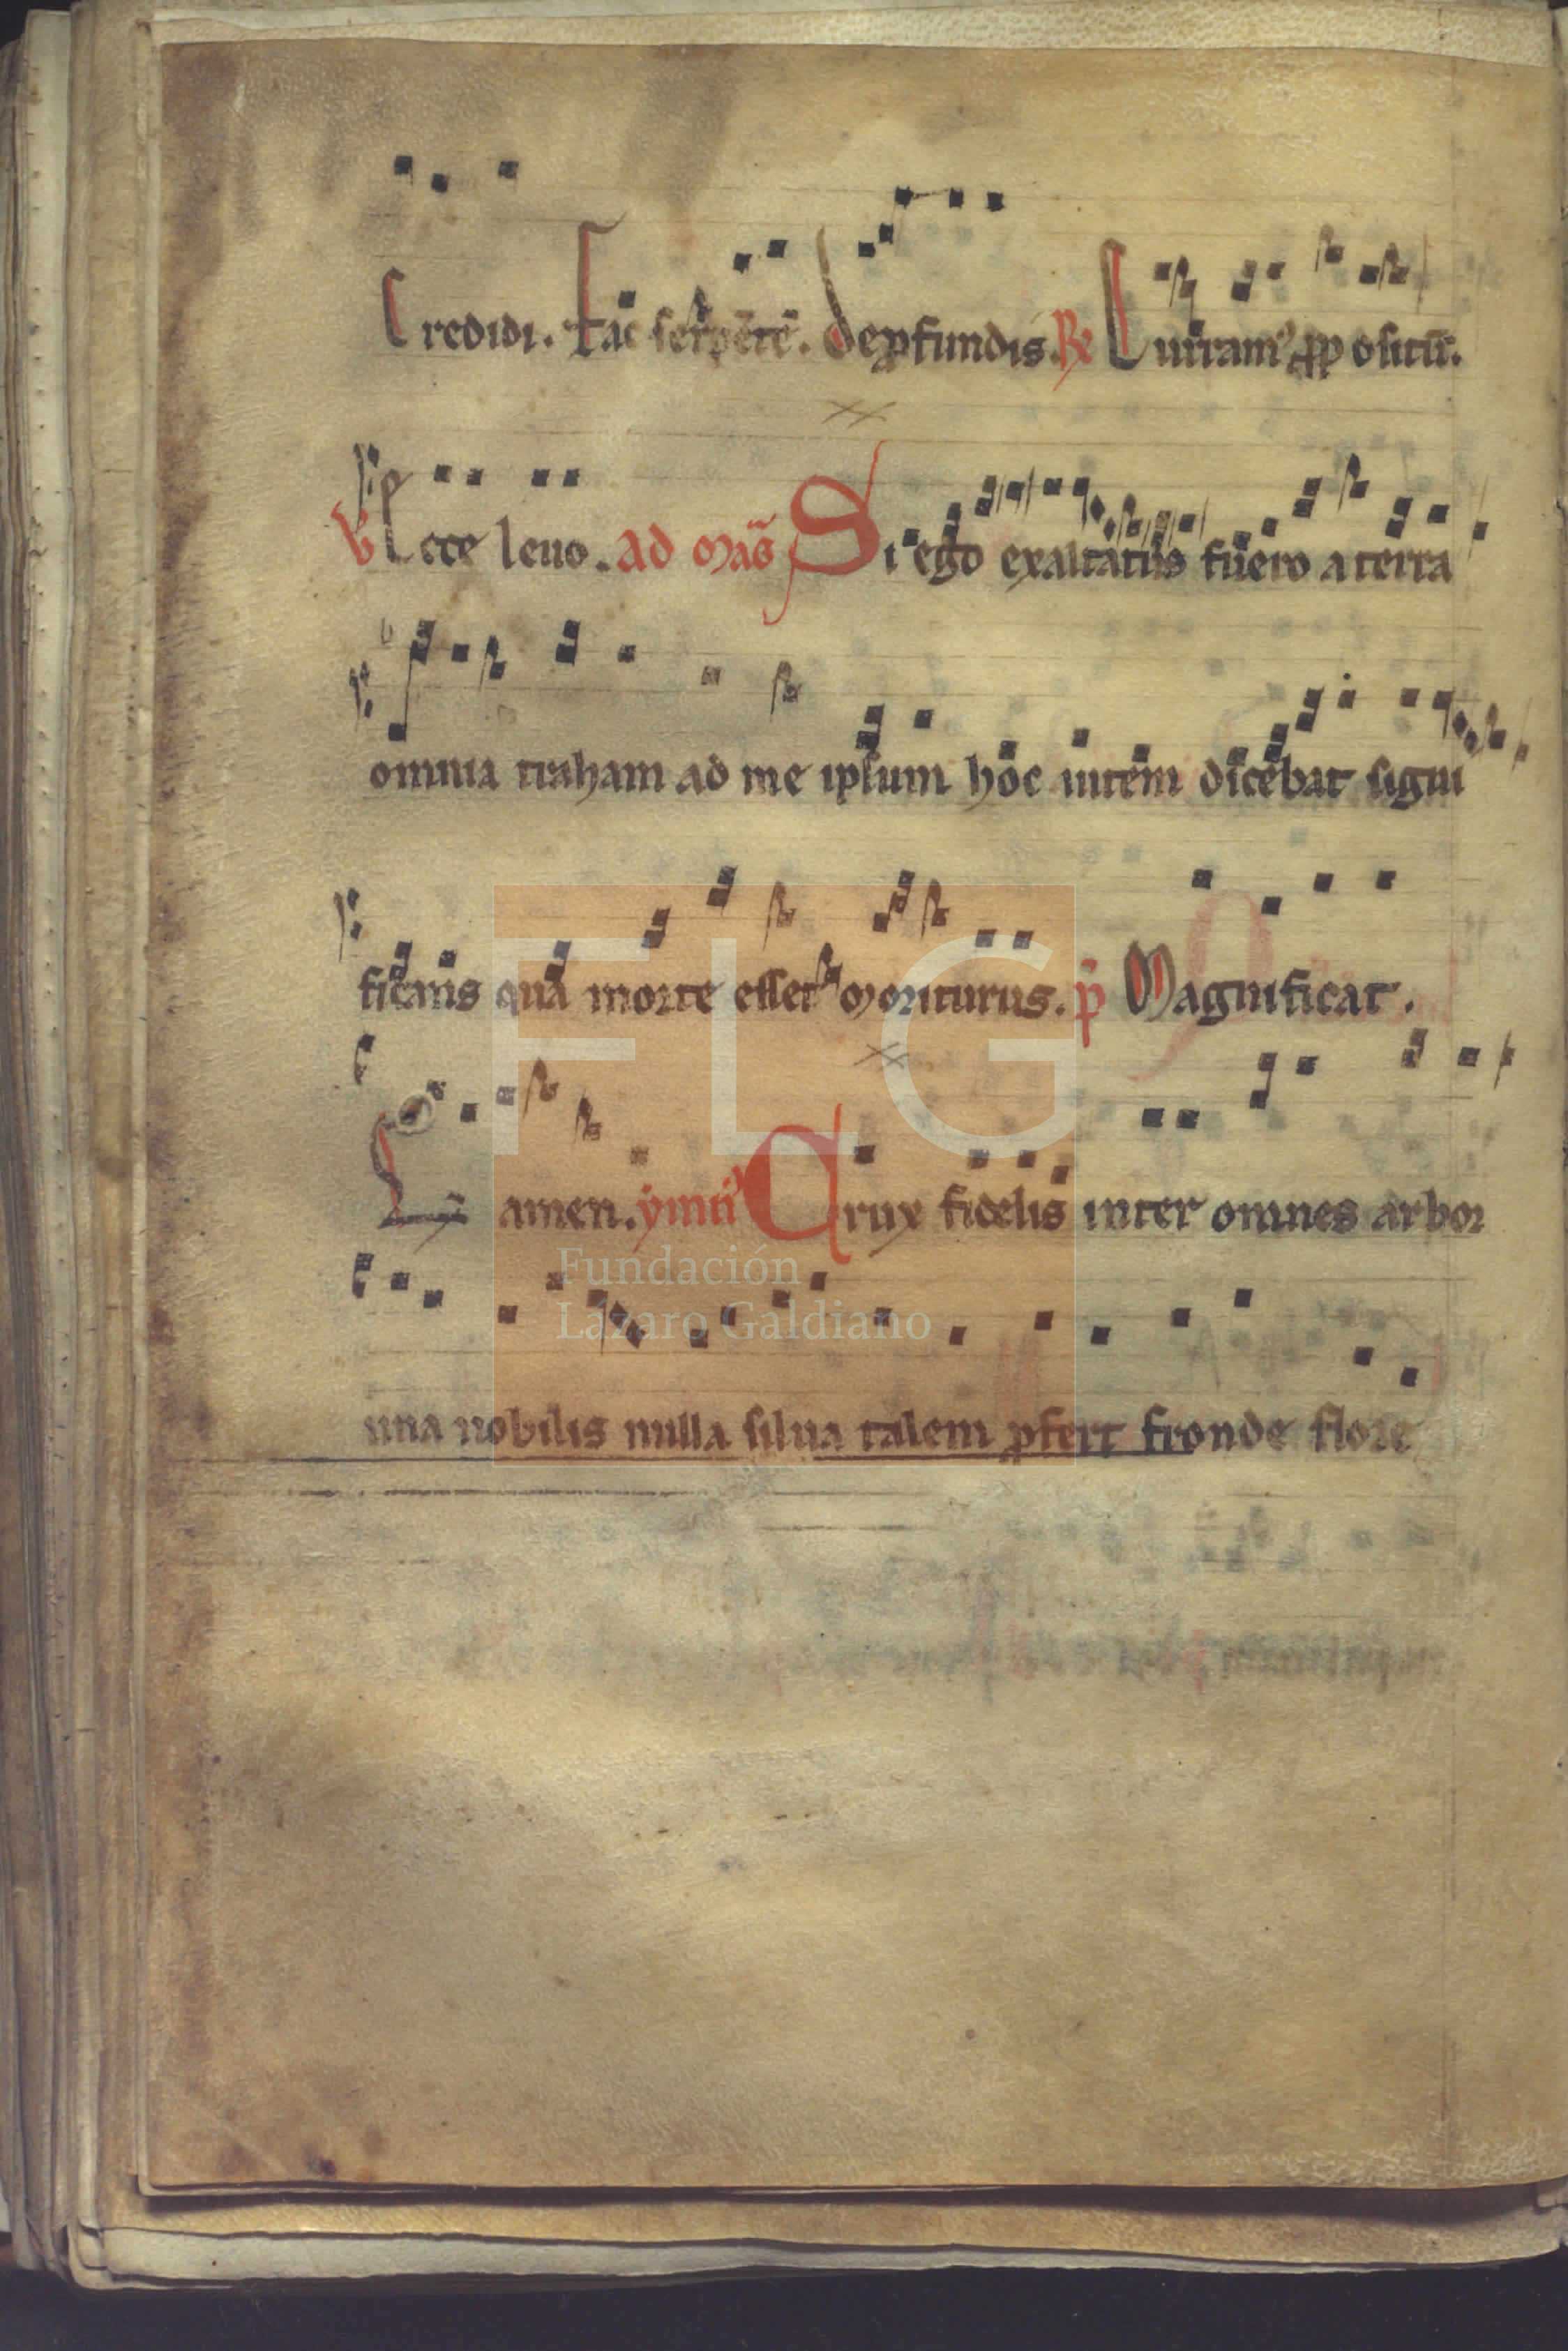 Credidi. Fac serpētē. de ꝓfundis. R̷ Cuiram ꝓpositū.
V Ecce leuo. ad Mag̃ Si ego exaltatus fuero a terra
omnia traham ad me ipsum hoc autem dicebat signi
ficans qua morte esset moriturus. p̄ Magnificat.
amen. ymn Crux fidelis inter omnes arbor
una nobilis nulla silua talem ꝓfert fronde flore
FLG
Fundación
Lázaro Galdiano